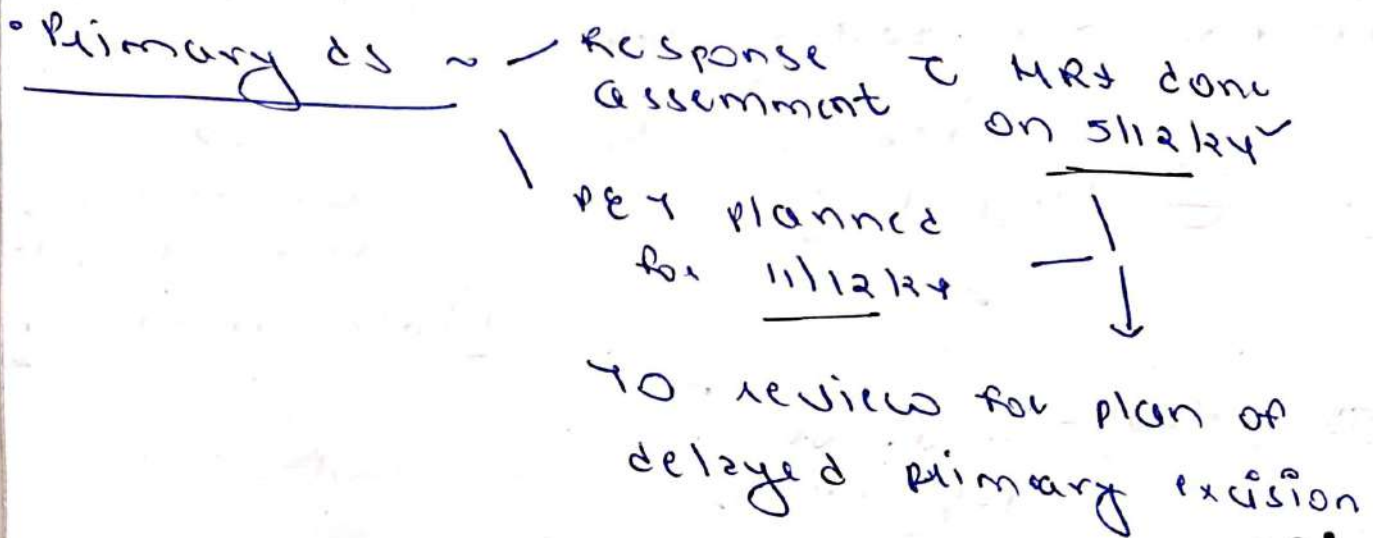 • Primary ds ~ – Response c̄ MRI done
assemment on 5/12/24 ✓
\ PET planned
for 11/12/24
TO review for plan of
delayed primary excision